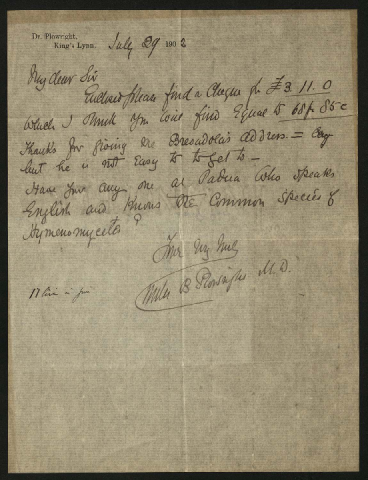 Dr. Plowright,
King's Lynn.
July 29 1902
My dear Sir
Enclosed please find a Cheque for £3.11.0
which I think you will find Equal to 68 f. 85 c
Thanks for giving me Bresadola's address =
but he is not Easy to to get to —
Have you any one at Padua who speaks
English and Knows the Common Species of
Hymenomycetes ?
Yours Very truly
Charles B Plowright M.D.